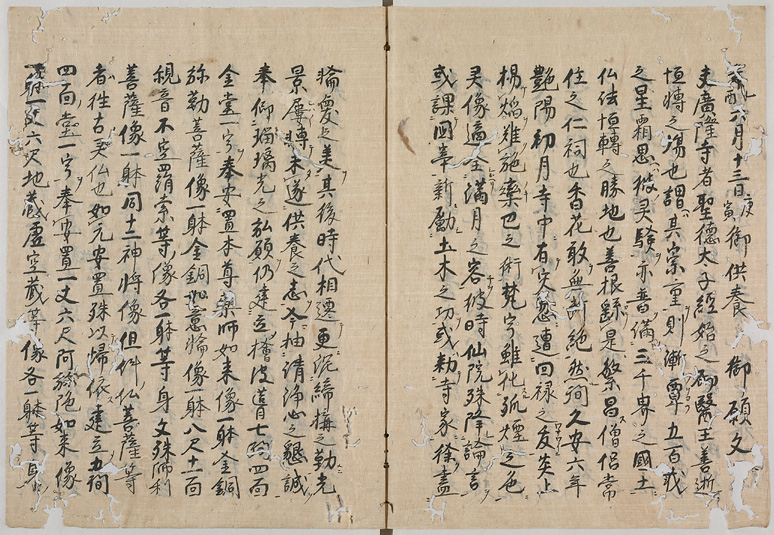 六月十三日庚寅御供養 御願文
夫廣隆寺者聖德太子經始之砌醫王善逝
恒轉之場也謂其崇重則漸覃五百或
之星霜思彼灵驗亦普滿三千界之國土
仏法恒轉之勝地也善根繇是繁昌僧侶常
住之仁祠也香花敢無断絶然間久安六年
艶陽初月寺中有災忽遭回禄之灾炎上
楊焔難施欒巴之術梵宇雖化孤煙之色
灵像適全滿月之容彼時仙院殊降論言
或課國宰新勵土木之功或勅寺家徐盡
輪奐之美其後時代相遷更泥締搆之勤光
景屢轉未遂供養之志今抽清浄心之懇誠
奉仰瑠璃光之弘願仍建立檜皮葺七間四面
金堂一宇奉安置本尊藥師如来像一躰金銅
弥勒菩薩像一躰金銅如意輪像一躰八尺十一面
観音不空羂索等像各一躰等身文殊師利
菩薩像一躰同十二神将像但件仏菩薩等
者往古灵仏也如元安置殊以歸依建立五間
四面堂一宇奉安置一丈六尺阿弥陀如来像
一躰一丈六尺地蔵虚空蔵等像各一躰等身